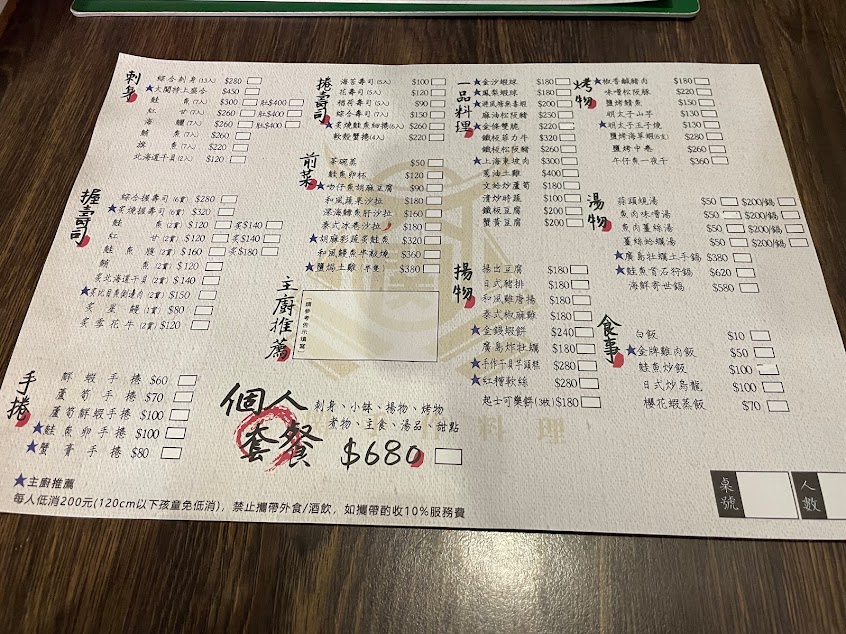 刺身
綜合刺身(13入) $280
★大關特上盛合 $450
鮭魚(7入) $300 肚$400
紅甘(7入) $260 肚$400
海鱺(7入) $260 肚$400
鮪魚(7入) $260
旗魚(7入) $220
北海道干貝(2入) $120
握壽司
綜合握壽司(6貫) $280
★炙燒握壽司(6貫) $320
鮭魚(2貫) $120 炙$140
紅甘(2貫) $120 炙$140
鮭魚腹(2貫) $160 炙$180
鮪魚(2貫) $120
炙北海道干貝(2貫) $140
★炙比目魚鰭邊肉(2貫) $150
炙星鰻(1貫) $80
炙雪花牛(2貫) $120
手捲
鮮蝦手捲 $60
蘆筍手捲 $70
蘆筍鮮蝦手捲 $100
★鮭魚卵手捲 $100
★蟹膏手捲 $80
捲壽司
海苔壽司(5入) $100
花壽司(5入) $120
稻荷壽司(5入) $90
綜合壽司(7入) $150
★炙燒鮭魚細捲(6入) $260
軟殼蟹捲(4入) $220
前菜
茶碗蒸 $50
鮭魚卵杯 $120
★吻仔魚胡麻豆腐 $90
和風蔬果沙拉 $180
深海鱈魚肝沙拉 $160
泰式冰卷沙拉 $180
★胡麻彩蔬茶鮭魚 $320
和風鰻魚牛蒡燒 $360
★鹽焗土雞(半隻) $380
主廚推薦
(請參考側示填寫)
個人套餐
刺身、小缽、揚物、烤物
煮物、主食、湯品、甜點
$680
一品料理
★金沙蝦球 $180
★鳳梨蝦球 $180
★避風塘軟喜蝦 $200
麻油松阪豬 $250
★金條雙脆 $220
鐵板菲力牛 $320
鐵板松阪豬 $260
★上海東坡肉 $300
蔥油土雞 $400
文蛤炒蘆筍 $180
清炒時蔬 $100
鐵板豆腐 $200
蟹黃豆腐 $200
揚物
揚出豆腐 $180
日式豬排 $180
和風雞唐揚 $180
泰式椒麻雞 $180
★金錢蝦餅 $240
廣島炸牡蠣 $180
★手作干貝芋頭糕 $280
★紅糟軟絲 $280
起士可樂餅(3枚) $180
烤物
★椒香鹹豬肉 $180
味噌松阪豚 $220
鹽烤鯖魚 $150
明太子山芋 $130
★明太子玉子燒 $130
鹽烤海草蝦(6支) $280
鹽烤中卷 $260
午仔魚一夜干 $360
湯物
蒜頭蜆湯 $50 $200/鍋
魚肉味噌湯 $50 $200/鍋
魚肉薑絲湯 $50 $200/鍋
薑絲蛤蠣湯 $50 $200/鍋
★廣島牡蠣土手鍋 $380
★鮭魚首石狩鍋 $620
海鮮寄世鍋 $580
食事
白飯 $10
★金牌雞肉飯 $50
鮭魚炒飯 $100
日式炒烏龍 $100
櫻花蝦蒸飯 $70
★主廚推薦
每人低消200元(120cm以下孩童免低消)，禁止攜帶外食/酒飲，如攜帶酌收10%服務費
桌號
人數